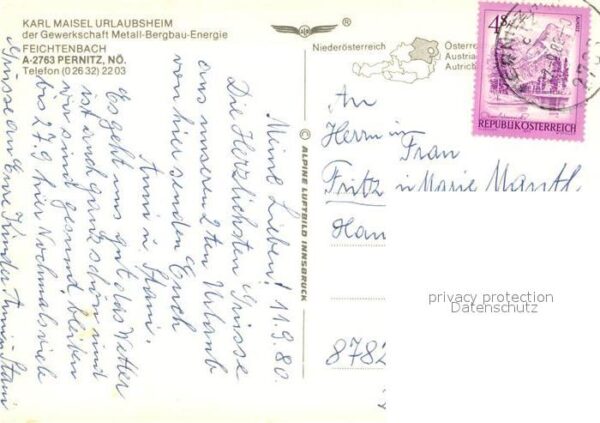 KARL MAISEL URLAUBSHEIM
der Gewerkschaft Metall-Bergbau-Energie
FEICHTENBACH
A-2763 PERNITZ, NÖ.
Telefon (0 26 32) 22 03
®
Niederösterreich
Österre
Austria
Autrich
4S
REPUBLIK ÖSTERREICH
© ALPINE LUFTBILD INNSBRUCK
Meine Lieben! 11.9.80.
Die Herzlichsten Grüsse
aus unserem 2ten Urlaub
von hier senden Euch
Anni u. Stani.
Es geht uns gut das Wetter
ist auch ganz schön und
wir sind gesund, bleiben
bis 27.9 hier Nochmals viele
Grüsse an Eure Kinder Anni u Stani
An
Herrn u
Frau
Fritz u Marie
Hau
8782
privacy protection
Datenschutz